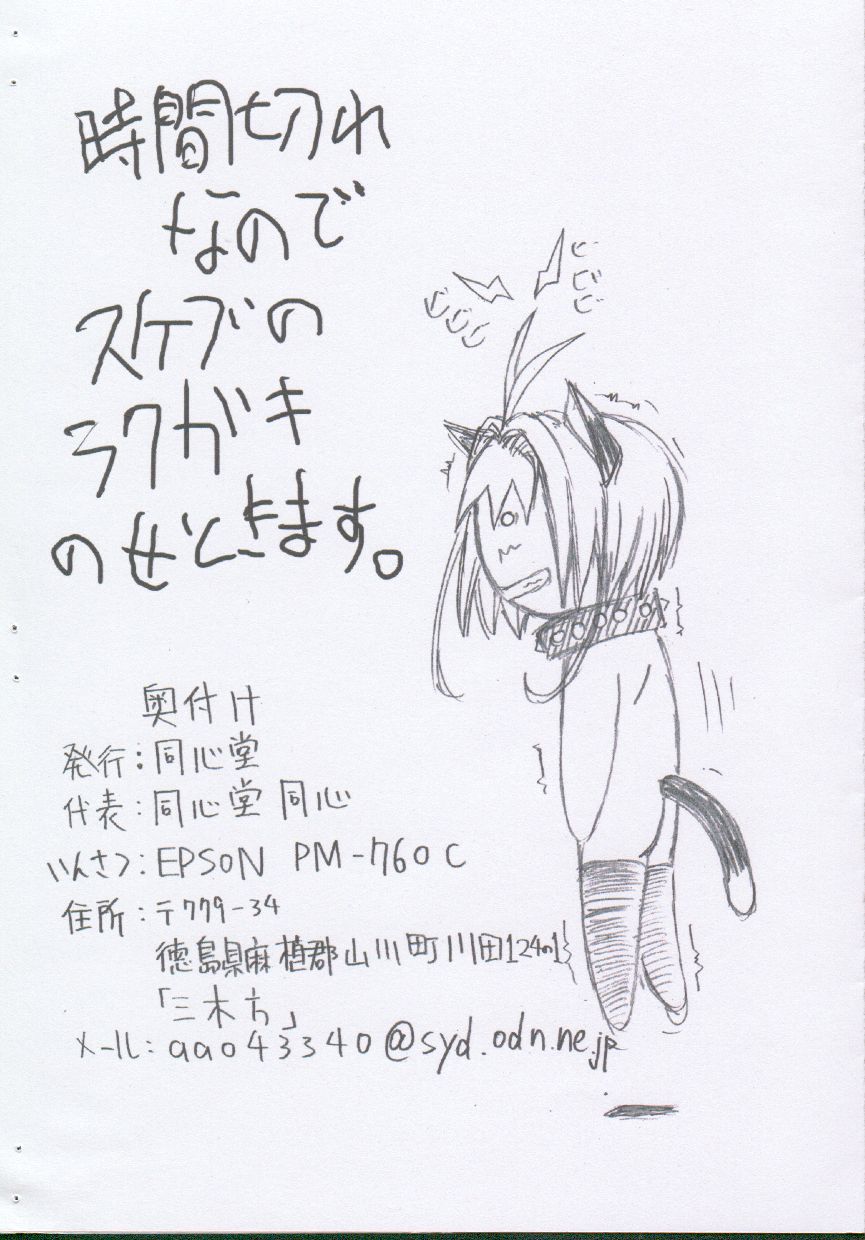 時間切れ
なので
スケブの
ラクガキ
のせときます。
ビビビ
ビビビ
奥付け
発行：同心堂
代表：同心堂 同心
いんさつ：EPSON PM-760C
住所：〒779-34
徳島県麻植郡山川町川田124の1
「三木方」
メール：aa043340@syd.odn.ne.jp